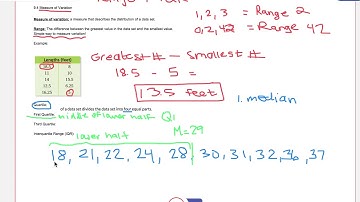 1, 2, 3 = Range 2
0, 2, 42 = Range 42
9.4 Measure of Variation
Measure of variation: a measure that describes the distribution of a data set.
Range: The difference between the greatest value in the data set and the smallest value.
Simple way to measure variation!!
Example:
Greatest # - Smallest #
Lengths (Feet)
18.5 8
11 10
14 15.5
12.5 6.25
16.25 5
18.5 - 5 =
13.5 feet
1. median
Quartile:
of a data set divides the data set into four equal parts.
First Quartile: middle of lower half Q1
Third Quartile:
Interquartile Range (IQR)
lower half
M=29
18, 21, 22, 24, 28, 30, 31, 32, 36, 37